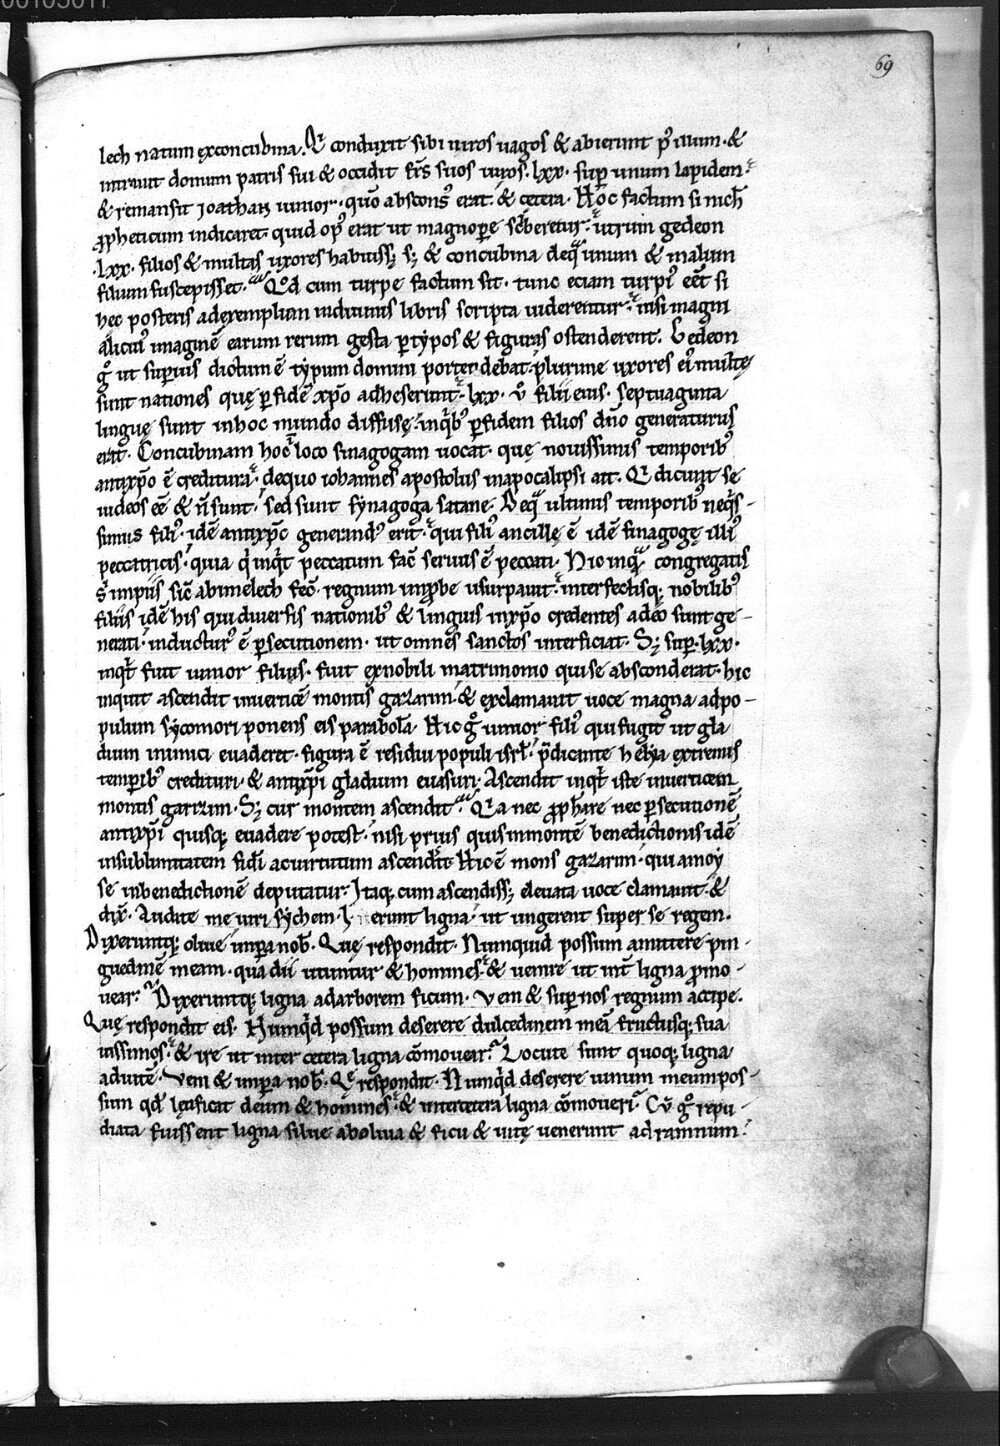 69
lech natum exconcubina. Qͥ conduxit sibi uiros uagos & abierunt p̾ illum. &
intrauit domum patris sui & occidit fr̄s suos uiros. lxx. sup̱ unum lapidem.
& remansit ioathan iunior. quō abscons᾽ erat. & cetera. Hoc factum si nich̄
ꝓpheticum indicaret. quid op᾽ erat ut magnopere sc̄beretur. utrum gedeon
.lxx. filios & multas uxores habuiss; s; & concubina deq̄ unum & malum
filium suscepisset. Qđ cum turpe factum sit. tunc eciam turpi᾽ eēt si
hec posteris adexemplum uidituris libris scripta uiderentur. nisi magni
alicui᾽ imaginē earum rerum gesta ꝑtypos & figuras ostenderent. Gedeon
gͦ ut superius dictum ē typum domini portendebat. plurime uxores ei᾽ multę
sunt nationes quę ꝑfidē xp̄o adheserunt. lxx. ỏ filii eius. septuaginta
linguę sunt inhoc mundo diffusę. inqͥb᾽ ꝑfidem filios dn̄o generaturus
erat. Concubinam hoc loco sinagogam uocat. quę nouissimis temporib᾽
antixp̄o ē creditura. dequo iohannes apostolus inapocalipsi ait. Qͥ dicunt se
iudeos eē & n̄ sunt. sed sunt synagoga satane. Deqͣ ultimis temporib᾽ neqͥs-
simus fili᾽. idē antixp̄c generand᾽ erit. qui fili᾽ ancillę ē idē sinagogę illi᾽
peccatricis. quia qͥ inqͥt peccatum fac̄ seruus ē peccati. Hic inqͣ congregatis
s᾽ impiis sic̄ abimelech fec̄. regnum improbe usurpauit. interfectisq; nobilib᾽
filiis idē his qui diuersis nationib᾽ & linguis inxp̄o credentes adeō sunt ge-
nerati. inductur᾽ ē ꝑsecutionem. ut omnes sanctos interficiat. S; sup̱. lxx.
inqͥt fuit iunior filius. fuit exnobili matrimonio qui se absconderat. hic
inquit ascendit inuerticē montis gazarim. & exclamauit uoce magna adpo-
pulum sycomori ponens eis parabolā. Hic gͦ iunior fili᾽ qui fugit ut gla
dium inimici euaderet. figura ē residui populi isrl̄. p̄dicante helya extremis
temporib᾽ credituri. & antixp̄i gladium euasuri. Ascendit inqͥt iste inuerticem
montis garizim. S; cur montem ascendit. Qͥa nec ꝓphare nec ꝑsecutionē
antixp̄i quisq; euadere potest. nisi prius quis inmontē benedictionis idē
insublimitatem fidī ac uirtutum ascendit. Hic ē mons gazarim. qui amoy
se inbenedictionē deputatur. Itaq; cum ascendiss; eleuata uoce clamauit. &
dix̄. Audite me uiri sychem. I erunt ligna. ut ungerent super se regem.
Dixeruntq; oliue impera nob̄. Quę respondit. Numquid possum amittere pin-
guedinē meam. qua dii utuntur & homines. & uenire ut int̄ ligna ꝓmo-
uear. Dixeruntq; ligna adarborem ficum. Veni & sup̱ nos regnum accipe.
Quę respondit eis. Numqͥd possum deserere dulcedinem meā fructusq; sua
uissimos. & ire ut inter cetera ligna cōmouear. Locute sunt quoq; ligna
aduitē. Veni & impera nob̄. Qę respondit. Numqͥd deserere uinum meum pos-
sum qđ lętificat deum & homines. & intercetera ligna cōmoueri. Cū gͦ repu-
diata fuissent ligna silue aboliua & ficu & uitę uenerunt ad ramnum.